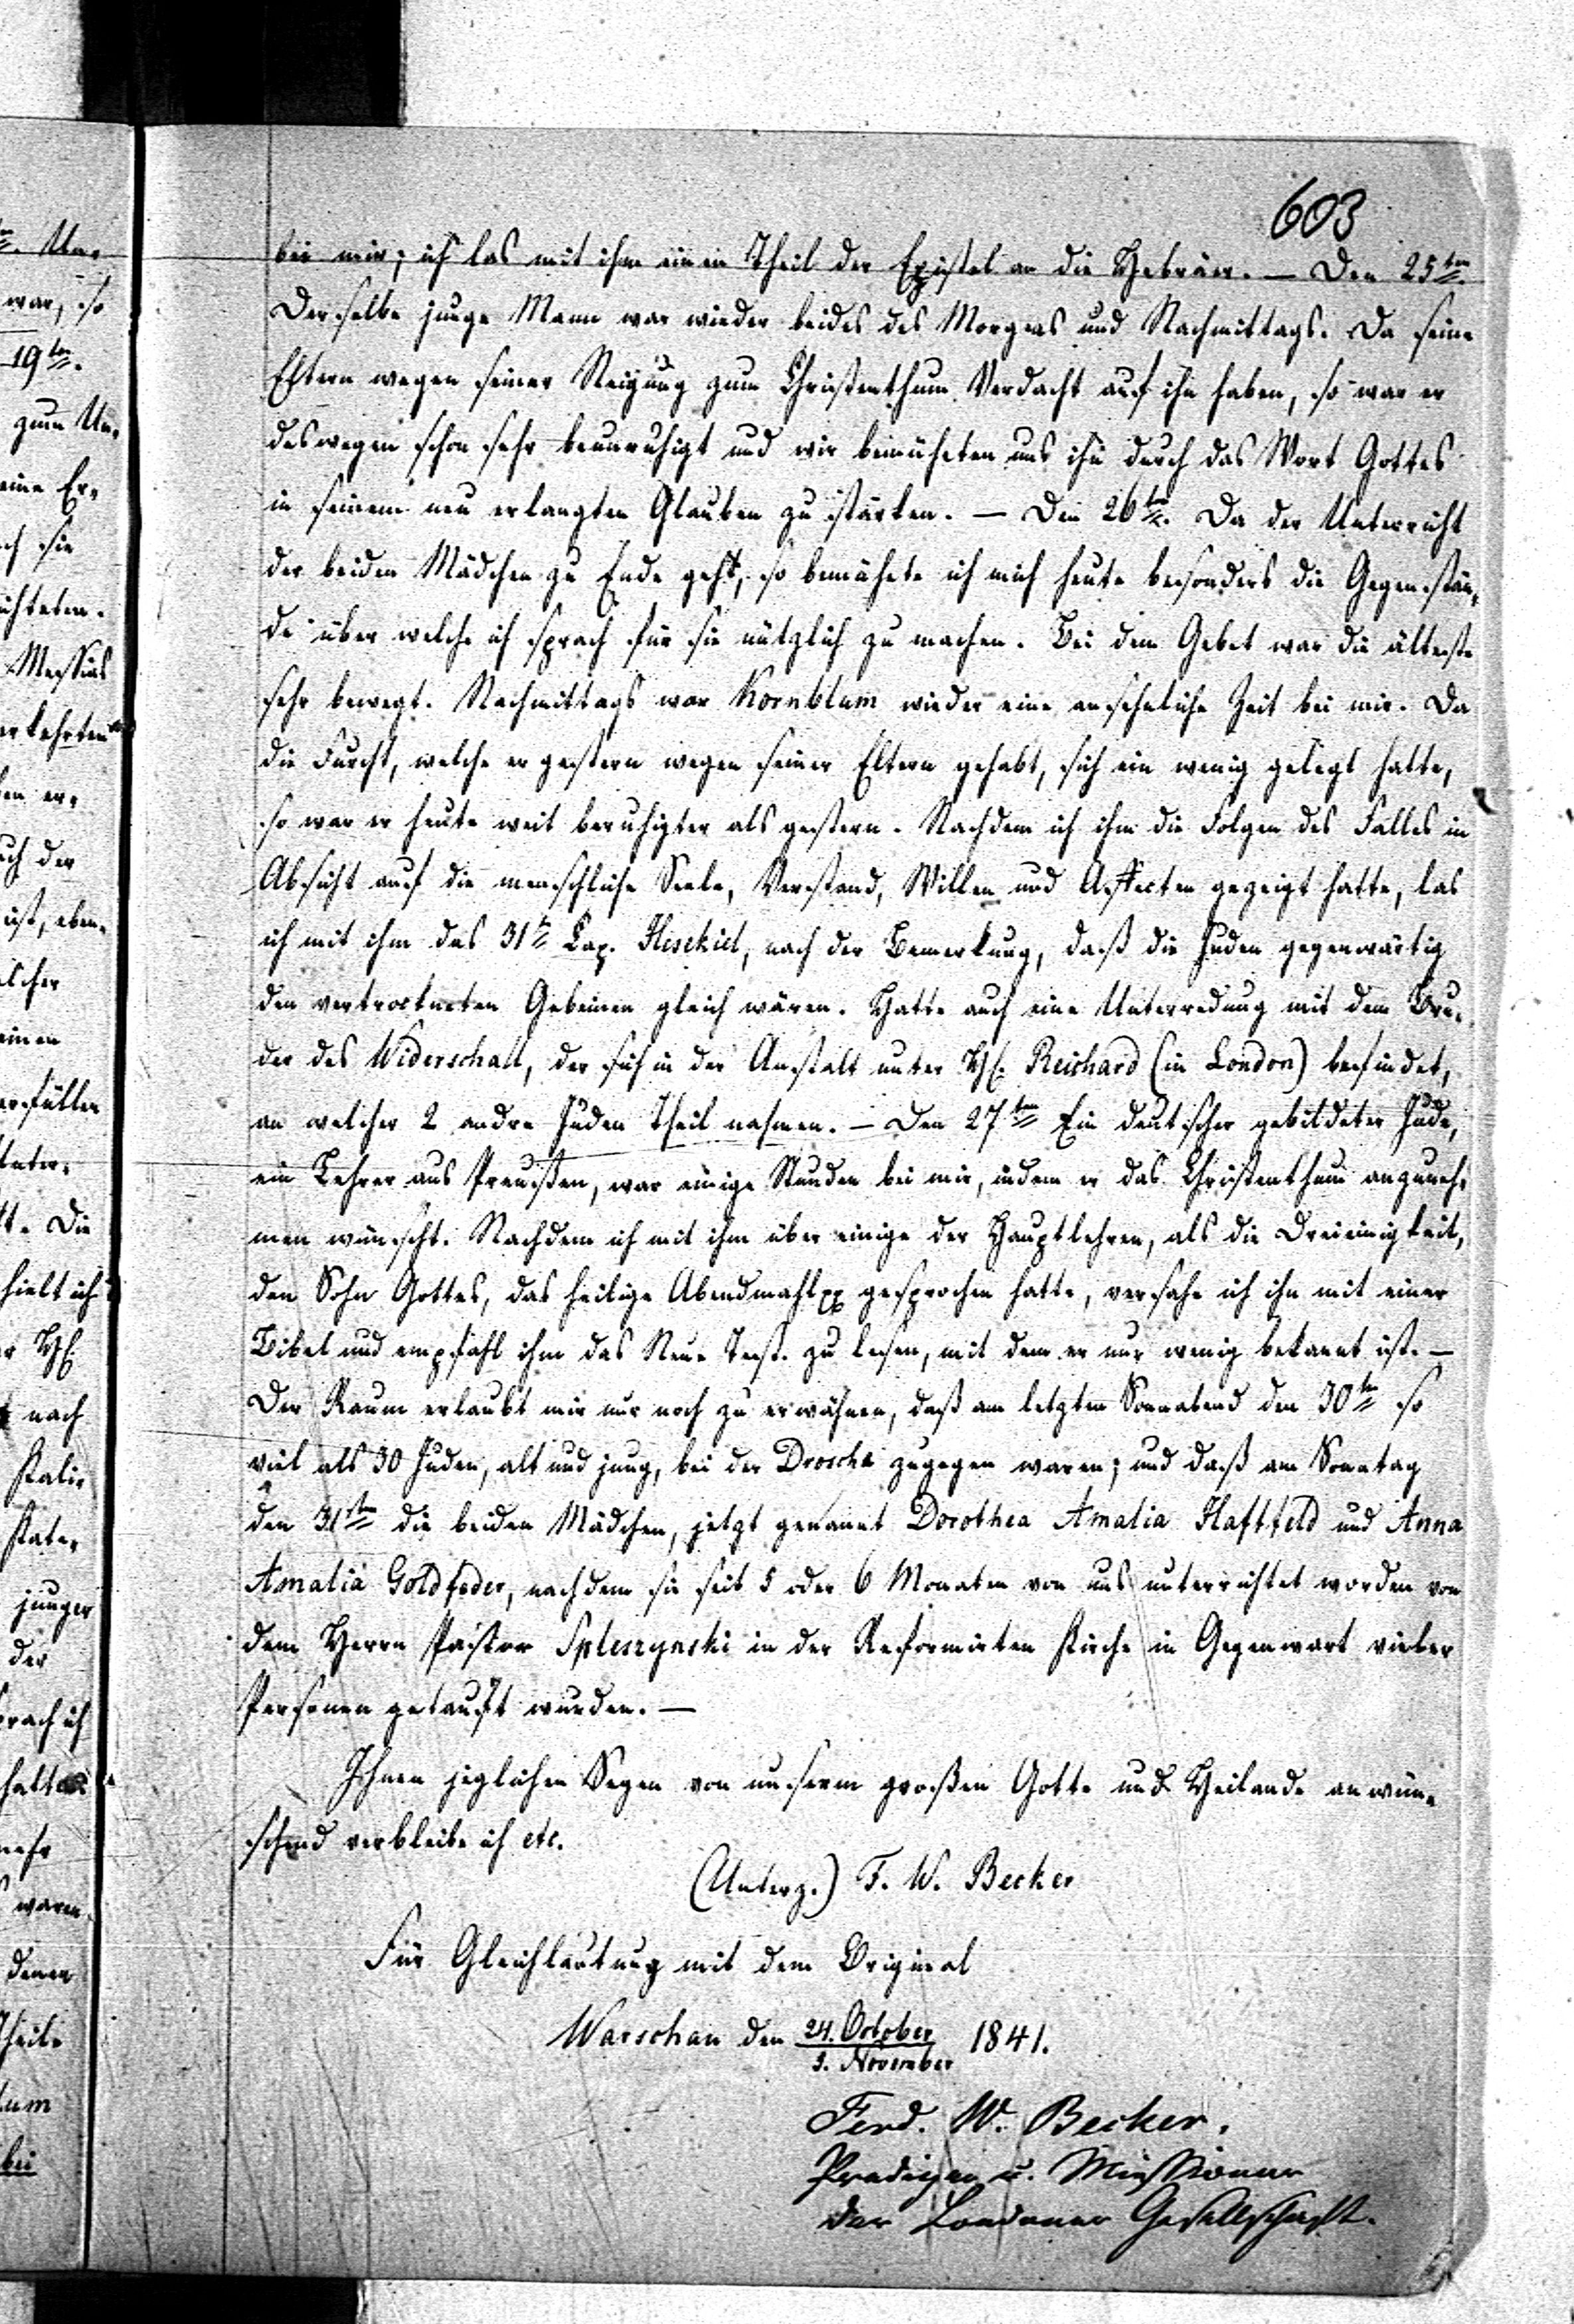 603
bei mir; ich las mit ihm einen Theil der Epistel an die Hebräer. — Den 25ten
Derselbe junge Mann war wieder beides des Morgens und Nachmittags. Da seine
Eltern wegen seiner Neigung zum Christenthum Verdacht auf ihn haben, so war er
deswegen schon sehr beunruhigt und wir bemüheten uns ihn durch das Wort Gottes
in seinem neu erlangten Glauben zu stärken. — Den 26ten. Da der Unterricht
der beiden Mädchen zu Ende geht, so bemühete ich mich heute besonders die Gegenstän-
de über welche ich sprach für sie nützlich zu machen. Bei dem Gebet war die älteste
sehr bewegt. Nachmittags war Kornblum wieder eine ansehnliche Zeit bei mir. Da
die Furcht, welche er gestern wegen seiner Eltern gehabt, sich ein wenig gelegt hatte,
so war er heute weit beruhigter als gestern. Nachdem ich ihm die Folgen des Falles in
Absicht auf die menschliche Seele, Verstand, Willen und Affecten gezeigt hatte, las
ich mit ihm das 31te Cap. Hesekiel, nach der Bemerkung, daß die Juden gegenwärtig
den vertrockneten Gebeinen gleich wären. Hatte auch eine Unterredung mit dem Bru-
der des Widerschall, der sich in der Anstalt unter H. Reichard (in London) befindet,
an welcher 2 andre Juden Theil nahmen. — Den 27ten Ein deutscher gebildeter Jude,
ein Lehrer aus Preußen, war einige Stunden bei mir, indem er das Christenthum anzuneh-
men wünscht. Nachdem ich mit ihm über einige der Hauptlehren, als die Dreieinigkeit,
den Sohn Gottes, das heilige Abendmahl pp gesprochen hatte, versahe ich ihn mit einer
Bibel und empfahl ihm das Neue Test. zu lesen, mit dem er nur wenig bekannt ist. —
Der Raum erlaubt mir nur noch zu erwähnen, daß am letzten Sonnabend den 30ten so
viel als 30 Juden, alt und jung, bei der Droscha zugegen waren; und daß am Sonntag
den 31ten die beiden Mädchen, jetzt genannt Dorothea Amalia Haftfeld und Anna
Amalia Goldfeder, nachdem sie seit 5 oder 6 Monaten von uns unterrichtet worden von
dem Herrn Pastor Spleszynski in der Reformirten Kirche in Gegenwart vieler
Personen getauft wurden. —
Ihnen jeglichen Segen von unserm großen Gotte und Heilande anwün-
schend verbleibe ich etc.
(Unterz.) F. W. Becker
Für Gleichlautung mit dem Original
Warschau den 24. October
3. November 1841.
Ferd. W. Becker,
Prediger u. Missionar
der Londoner Gesellschaft.